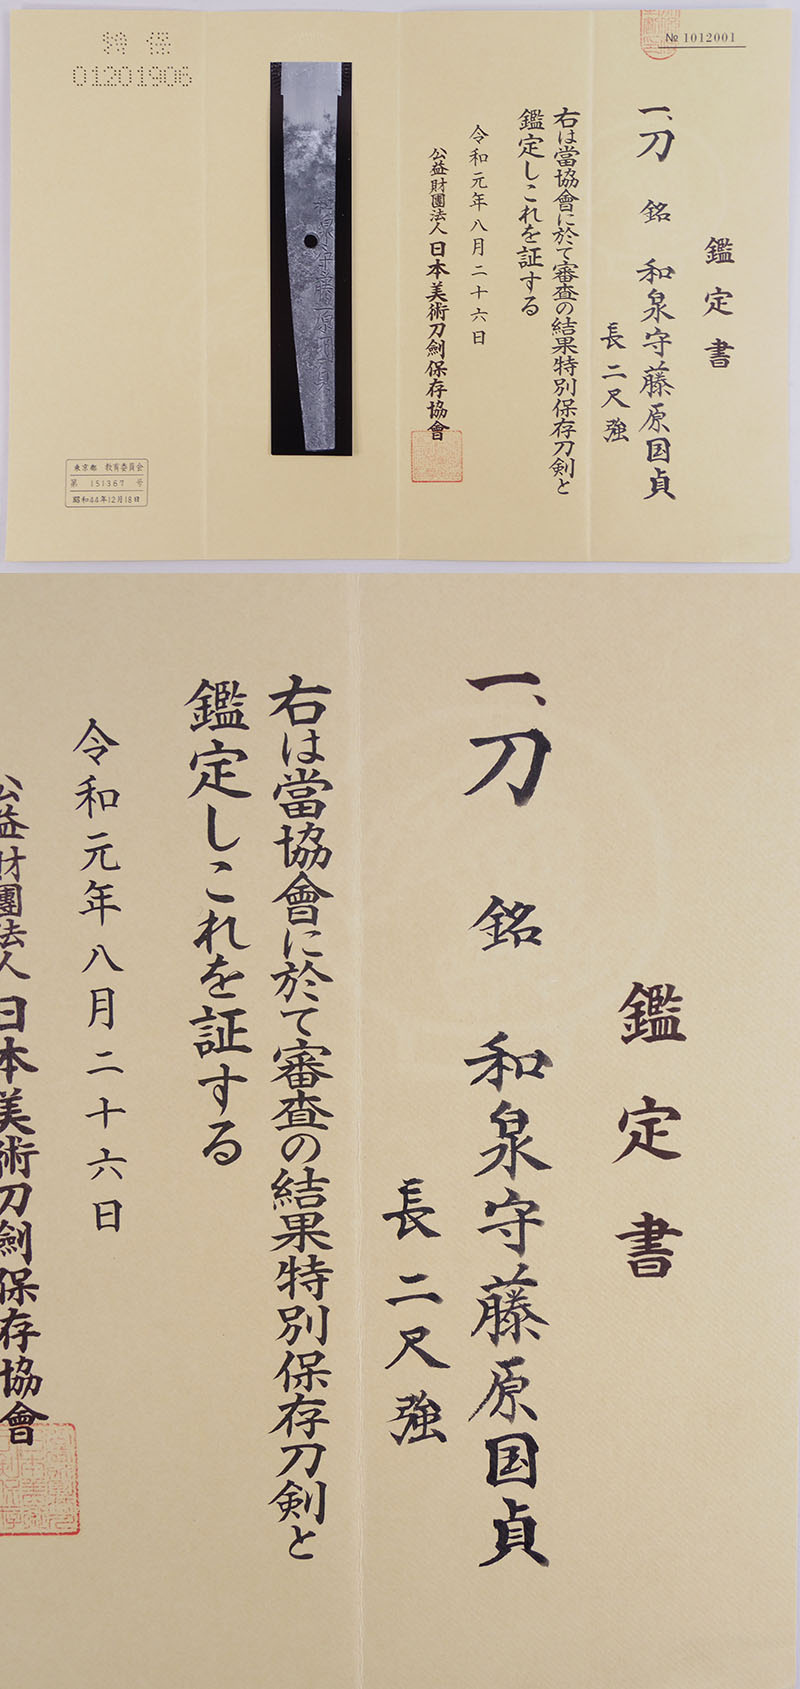 № 1012001
鑑定書
一、刀 銘 和泉守藤原国貞
長二尺強
右は當協會に於て審査の結果特別保存刀剣と
鑑定しこれを証する
令和元年八月二十六日
公益財團法人日本美術刀劍保存協會
和泉守藤原国貞
特保
01201906
東京都 教育委員会
第 151367 号
昭和44年12月18日
鑑定書
一、刀 銘 和泉守藤原国貞
長二尺強
右は當協會に於て審査の結果特別保存刀剣と
鑑定しこれを証する
令和元年八月二十六日
公益財團法人日本美術刀劍保存協會